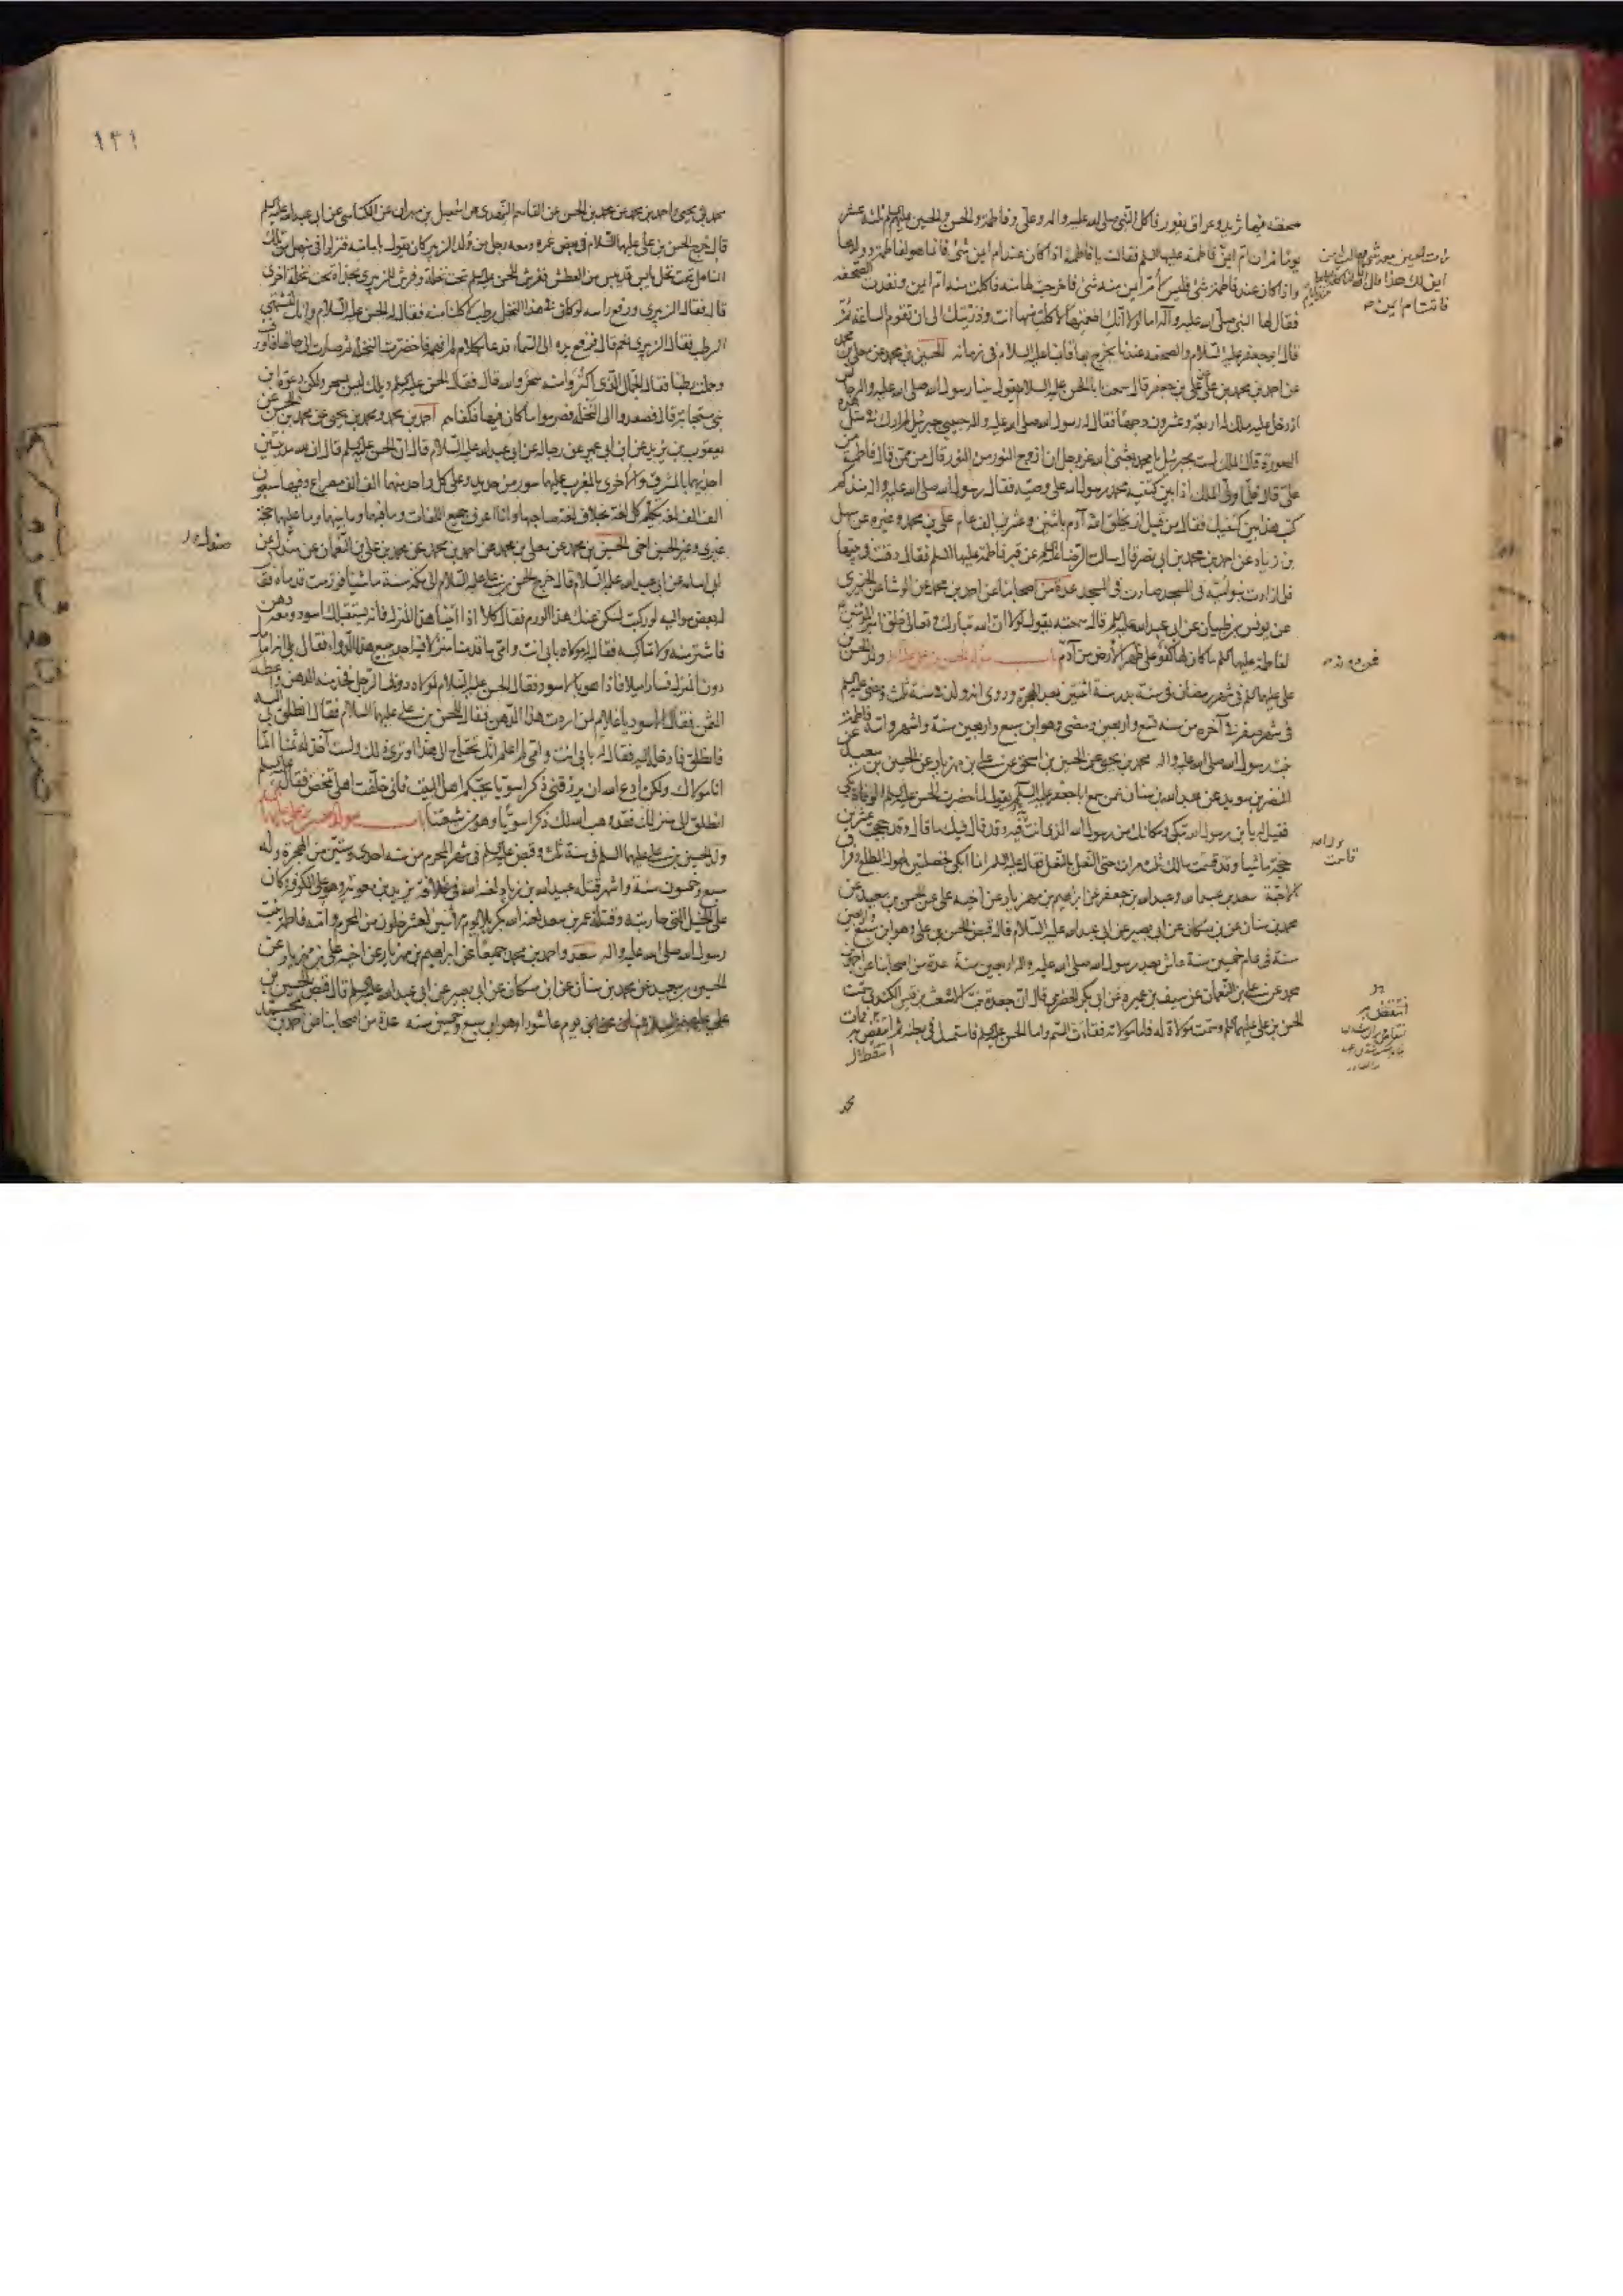 صحفة فيها ثريد وعراق يفور فاكل النبي صلى الله عليه واله وعلي وفاطمة والحسن والحسين عليهم السلم ثلثة عشر
يوما ثم ان ام ايمن
فقالت يا فاطمة اذا كان عند ام ايمن شئ فانما هو لفاطمة وولدها
واذا كان عند فاطمة شئ فليس لام ايمن منه شئ فاخرجت لها منه فاكلت منه ام ايمن ونفدت الصحفة
فقال لها النبي صلى الله عليه وآله اما لولا انك اطعمتها لاكلت منها انت وذريتك الى ان تقوم الساعة ثم
قال ابو جعفر عليه السلام والصحفة عندنا يخرج بها قائمنا عليه السلام في زمانه الحسين بن محمد عن معلى بن محمد
عن احمد بن محمد بن علي عن علي بن جعفر قال سمعت ابا الحسن عليه السلام يقول بينا رسول الله صلى الله عليه واله جالس
اذ دخل عليه ملك له اربعة وعشرون وجها فقال له رسول الله صلى الله عليه واله حبيبي جبرئيل لم ارك في مثل هذه
الصورة قال الملك لست بجبرئيل يا محمد بعثني الله عز وجل ان ازوج النور من النور قال من ممن قال فاطمة من
علي قال فلما ولى الملك اذا بين كتفيه محمد رسول الله علي وصيه فقال رسول الله صلى الله عليه واله منذ كم
كتب هذا بين كتفيك فقال من قبل ان يخلق الله آدم باثنين وعشرين الف عام علي بن محمد وغيره عن سهل
بن زياد عن احمد بن محمد بن ابي نصر قال سالت الرضا عليه السلم عن قبر فاطمة عليها السلم فقال دفنت في بيتها
فلما زادت بنو امية في المسجد صارت في المسجد عدة من اصحابنا عن احمد بن محمد عن الوشا عن الخيبري
عن يونس بن ظبيان عن ابي عبد الله عليه السلم قال سمعته يقول لولا ان الله تبارك وتعالى خلق امير المؤمنين
لفاطمة عليها السلم ما كان لها كفو على ظهر الارض من آدم باب مولد الحسن بن علي
ولد الحسن بن
علي عليهما السلم في شهر رمضان في سنة بدر سنة اثنتين بعد الهجرة وروي انه ولد في سنة ثلث ومضى عليه السلم
في شهر صفر في آخره من سنة تسع واربعين ومضى وهو ابن سبع واربعين سنة واشهر وامه فاطمة
بنت رسول الله صلى الله عليه واله محمد بن يحيى عن الحسين بن اسحق عن علي بن مهزيار عن الحسين بن سعيد عن
النضر بن سويد عن عبد الله بن سنان عمن سمع ابا جعفر عليه السلم يقول لما حضرت الحسن عليه السلم الوفاة بكى
فقيل له يا بن رسول الله تبكي ومكانك من رسول الله الذي انت فيه وقد قال فيك ما قال وقد حججت عشرين
حجة ماشيا وقد قاسمت مالك ثلث مرات حتى النعل بالنعل فقال عليه السلم انما ابكي لخصلتين لهول المطلع وفراق
الاحبة سعد بن عبد الله وعبد الله بن جعفر عن ابراهيم بن مهزيار عن اخيه علي عن الحسن بن سعيد عن
محمد بن سنان عن بن مسكان عن ابي بصير عن ابي عبد الله عليه السلام قال قبض الحسن بن علي وهو ابن سبع واربعين
سنة في عام خمسين سنة عاش بعد رسول الله صلى الله عليه واله اربعين سنة عدة من اصحابنا عن احمد بن
محمد عن علي بن النعمان عن سيف بن عميرة عن ابي بكر الحضرمي قال ان جعدة بنت الاشعث بن قيس الكندي سمت
الحسن بن علي عليهما السلم وسمت مولاة له فاما مولاته فقاءت السم واما الحسن عليه السلم فاستمسك في بطنه ثم انتقض به فمات
محمد
١٣١
محمد بن يحيى واحمد بن محمد عن محمد بن الحسن عن القاسم النهدي عن اسمعيل بن مهران عن الكناسي عن ابي عبد الله عليه السلم
قال خرج الحسن بن علي عليهما السلام في بعض عمره ومعه رجل من ولد الزبير كان يقول بامامته فنزلوا في منهل من تلك
المناهل تحت نخل يابس قد يبس من العطش ففرش للحسن عليه السلم تحت نخلة وفرش للزبيري بحذاه تحت نخلة اخرى
قال فقال الزبيري ورفع راسه لو كان في هذا النخل رطب لاكلنا منه فقال له الحسن عليه السلام وانك لتشتهي
الرطب فقال الزبيري نعم قال فرفع يده الى السماء فدعا بكلام لم افهمه فاخضرت النخلة ثم صارت الى حالها فاورقت
وحملت رطبا فقال الجمال الذي اكتروا منه سحر والله قال فقال الحسن عليه السلم ويلك ليس بسحر ولكن دعوة ابن
نبي مستجابة قال فصعدوا الى النخلة فصرموا ما كان فيها فكفاهم احمد بن محمد ومحمد بن يحيى عن محمد بن الحسن عن
يعقوب بن يزيد عن ابن ابي عمير عن رجاله عن ابي عبد الله عليه السلام قال ان الحسن عليه السلم قال ان لله مدينتين
احديهما بالمشرق والاخرى بالمغرب عليهما سور من حديد وعلى كل واحد منهما الف الف مصراع وفيها سبعون
الف الف لغة يتكلم كل لغة بخلاف لغة صاحبها وانا اعرف جميع اللغات وما فيهما وما بينهما وما عليهما حجة
غيري وغير الحسين اخي الحسين بن محمد عن معلى بن محمد عن احمد بن محمد عن محمد بن علي بن النعمان عن صندل عن
ابي اسامة عن ابي عبد الله عليه السلام قال خرج الحسن بن علي عليه السلام الى مكة سنة ماشيا فورمت قدماه فقال
له بعض مواليه لو ركبت لسكن عنك هذا الورم فقال كلا اذا اتينا هذا المنزل فانه يستقبلك اسود ومعه دهن
فاشتر منه ولا تماكسه فقال له مولاه بابي انت وامي ما قدمنا منزلا فيه احد يبيع هذا الدواء فقال بلى انه امامك
دون المنزل فسارا ميلا فاذا هو بالاسود فقال الحسن عليه السلام لمولاه دونك الرجل فخذ منه الدهن واعطه
الثمن فقال الاسود يا غلام لمن اردت هذا الدهن فقال للحسن بن علي عليهما السلام فقال انطلق بي اليه
فانطلق فادخله اليه فقال له بابي انت وامي لم اعلم انك تحتاج الى هذا او ترى ذلك ولست آخذ له ثمنا انما
انا مولاك ولكن ادع الله ان يرزقني ذكرا سويا يحبكم اهل البيت فاني خلفت اهلي تمخض فقال عليه السلم
انطلق الى منزلك فقد وهب الله لك ذكرا سويا وهو من شيعتنا باب مولد الحسين بن علي عليهما السلم
ولد الحسين بن علي عليهما السلم في سنة ثلث وقبض عليه السلم في شهر المحرم من سنة احدى وستين من الهجرة وله
سبع وخمسون سنة واشهر قتله عبيد الله بن زياد لعنه الله في خلافة يزيد بن معوية وهو على الكوفة وكان
على الخيل التي حاربته وقتلته عمر بن سعد لعنه الله بكربلا يوم الاثنين لعشر خلون من المحرم وامه فاطمة بنت
رسول الله صلى الله عليه واله سعد واحمد بن محمد جميعا عن ابراهيم بن مهزيار عن اخيه علي بن مهزيار عن
الحسين بن سعيد عن محمد بن سنان عن ابن مسكان عن ابي بصير عن ابي عبد الله عليه السلم قال قبض الحسين بن
علي
يوم عاشورا وهو ابن سبع وخمسين سنة عدة من اصحابنا عن احمد بن محمد